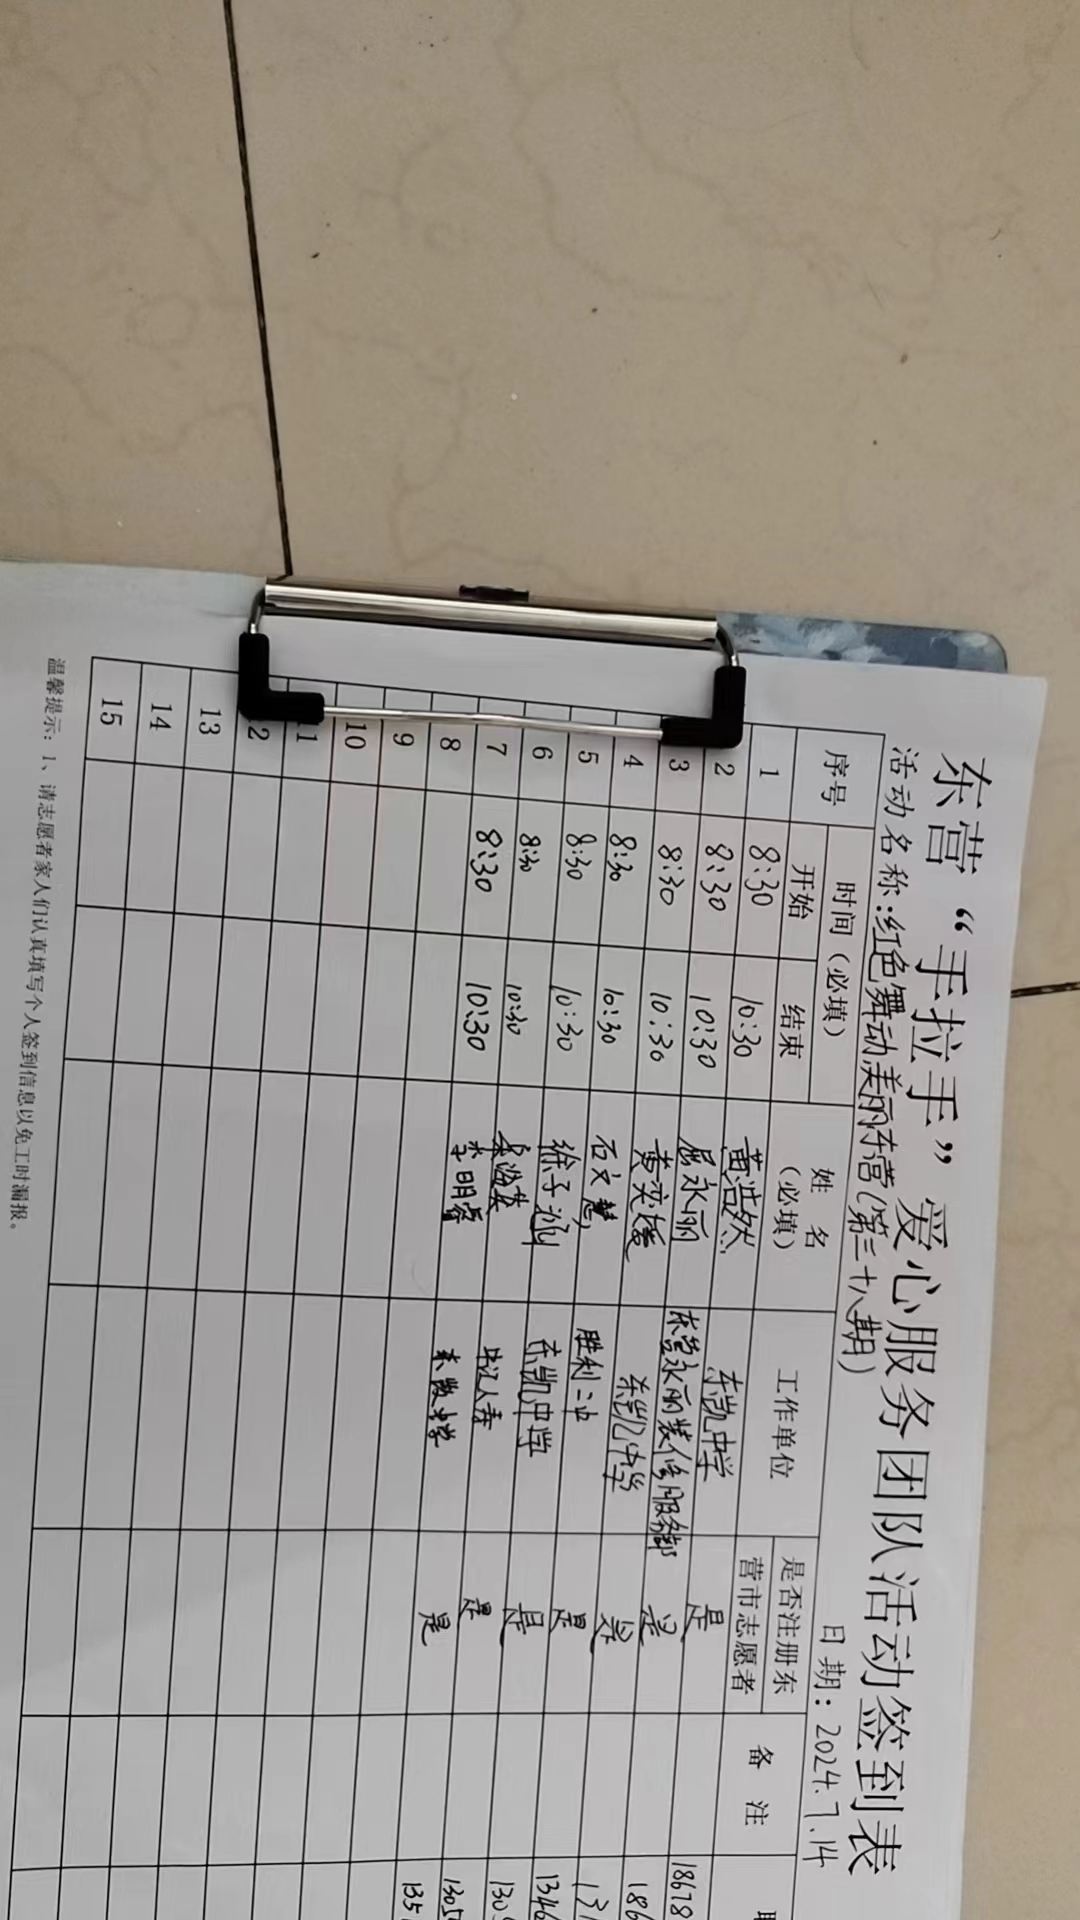 东营“手拉手”爱心服务团队活动签到表
活动名称:红色舞动美丽东营(第三十八期) 日期: 2024.7.14
序号 时间(必填) 姓名(必填) 工作单位 是否注册东营市志愿者 备注
开始 结束
1 8:30 10:30 黄浩然 东凯中学 是 18678
2 8:30 10:30 屈永丽 东营永丽装修服务部 是 186
3 8:30 10:30 黄奕援 东凯中学 是 13
4 8:30 10:30 石文慧 胜利二中 是 1346
5 8:30 10:30 徐子涵 东凯中学 是 130
6 8:30 10:30 海英 人寿 是 1305
7 8:30 10:30 李明睿 中学 是 135
8
9
10
11
12
13
14
15
温馨提示: 1、请志愿者家人们认真填写个人签到信息以免工时漏报。